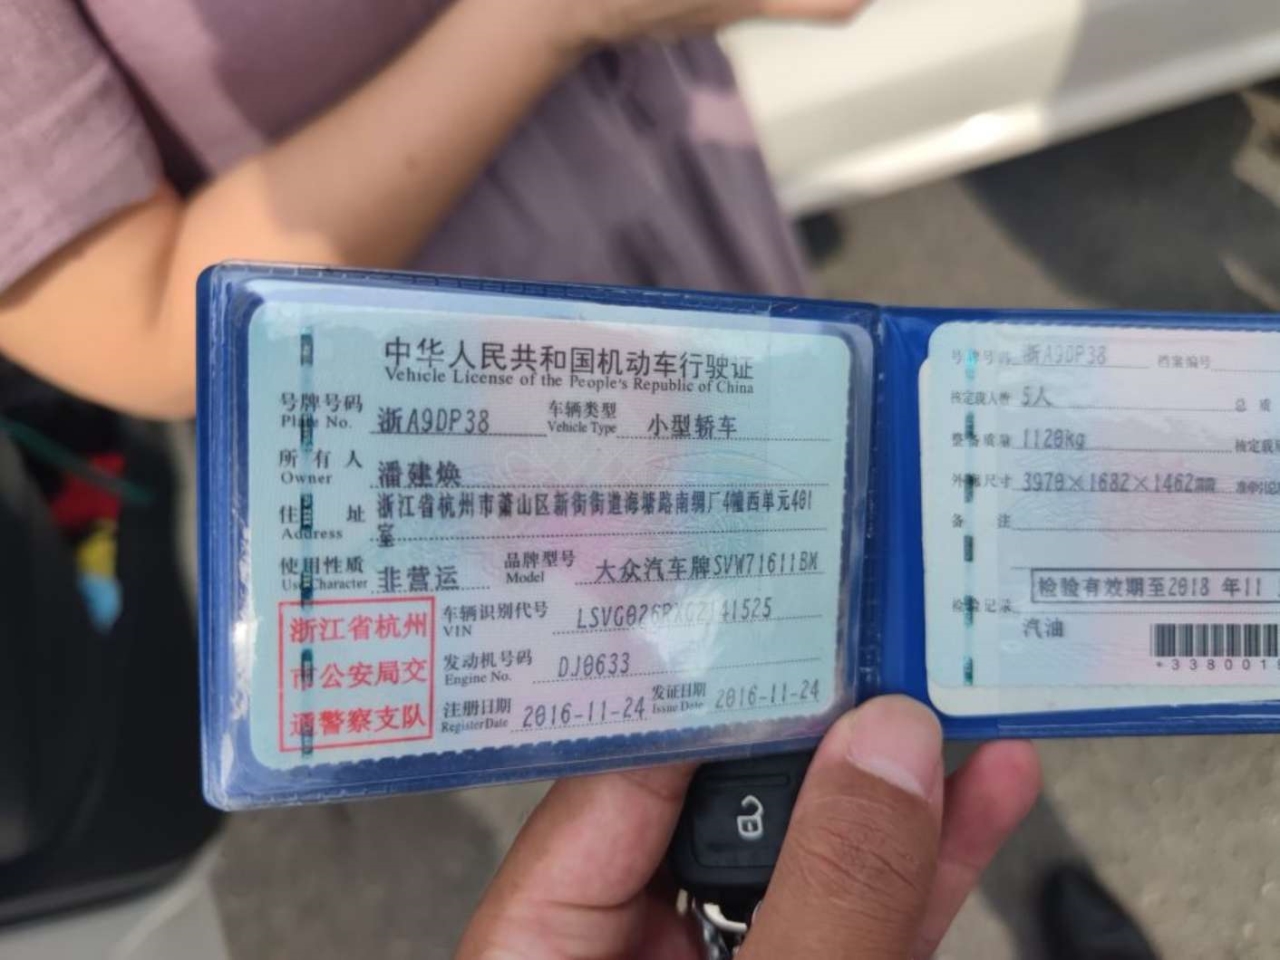 中华人民共和国机动车行驶证
Vehicle License of the People's Republic of China
号牌号码 浙A9DP38 车辆类型 小型轿车
Plate No. Vehicle Type
所有人 潘建焕
Owner
住址 浙江省杭州市萧山区新街街道海塘路南绸厂4幢西单元401
室
Address
使用性质 非营运 品牌型号 大众汽车牌SVW71611BM
Use Character Model
浙江省杭州
市公安局交
通警察支队
车辆识别代号
VIN
发动机号码 DJ0633
Engine No.
注册日期 2016-11-24 发证日期 2016-11-24
Register Date Issue Date
号牌号码 浙A9DP38 档案编号
核定载人数 5人 总质
整备质量 1120kg 核定载
外廓尺寸 3970×1682×1462mm
备注
检验有效期至2018年11
检验记录
汽油